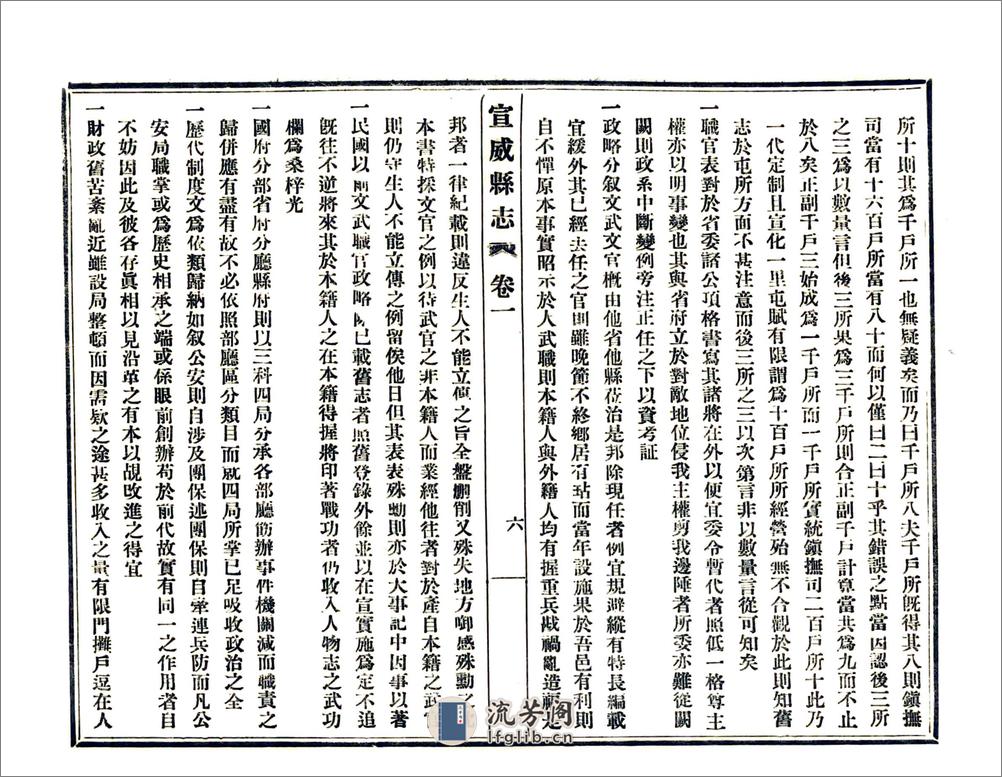 所十則其爲千戶所一也無疑義矣而乃曰千戶所八夫千戶所既得其八則鎭撫
司當有十六百戶所當有八十而何以僅曰二曰十乎其錯誤之點當因認後三所
之三爲以數量言但後三所果爲三千戶所則合正副千戶計算當共爲九而不止
於八矣正副千戶三始成爲一千戶所而一千戶所實統鎭撫司二百戶所十此乃
一代定制且宣化一里屯賦有限謂爲十百戶所所經營殆無不合觀於此則知舊
志於屯所方面不甚注意而後三所之三以次第言非以數量言從可知矣
一職官表對於省委諸公頂格書寫其諸將在外以便宜委令暫代者照低一格尊主
權亦以明事變也其與省府立於對敵地位侵我主權剪我邊陲者所委亦難從闕
闕則政系中斷變例旁注正任之下以資考証
一政略分叙文武文官概由他省他縣蒞治是邦除現任者例宜規避縱有特長編載
宜緩外其已經去任之官則雖晚節不終鄉居有玷而當年設施果於吾邑有利則
自不憚原本事實昭示於人武職則本籍人與外籍人均有握重兵戡禍亂造福是
宣威縣志 卷一
六
邦者一律紀載則違反生人不能立傳之旨全盤刪削又殊失地方啣感殊勳之
本書特採文官之例以待武官之非本籍人而業經他往者對於產自本籍之武
則仍守生人不能立傳之例留俟他日但其表表殊勳則亦於大事記中因事以著
一民國以前文武職官政略已載舊志者照舊登錄外餘並以在宣實施爲定不追
既往不逆將來其於本籍人之在本籍得握將印著戰功者仍收入人物志之武功
欄爲桑梓光
一國府分部省府分廳縣府則以三科四局分承各部廳飭辦事件機關減而職責之
歸併應有盡有故不必依照部廳區分類目而就四局所掌已足吸收政治之全
一歷代制度文爲依類歸納如叙公安則自涉及團保述團保則自牽連兵防而凡公
安局職掌或爲歷史相承之端或係眼前創辦苟於前代故實有同一之作用者自
不妨因此及彼各存眞相以見沿革之有本以覘改進之得宜
一財政舊苦紊亂近雖設局整頓而因需欵之途甚多收入之量有限門攤戶逗在人
流芳閣
lfglib.cn